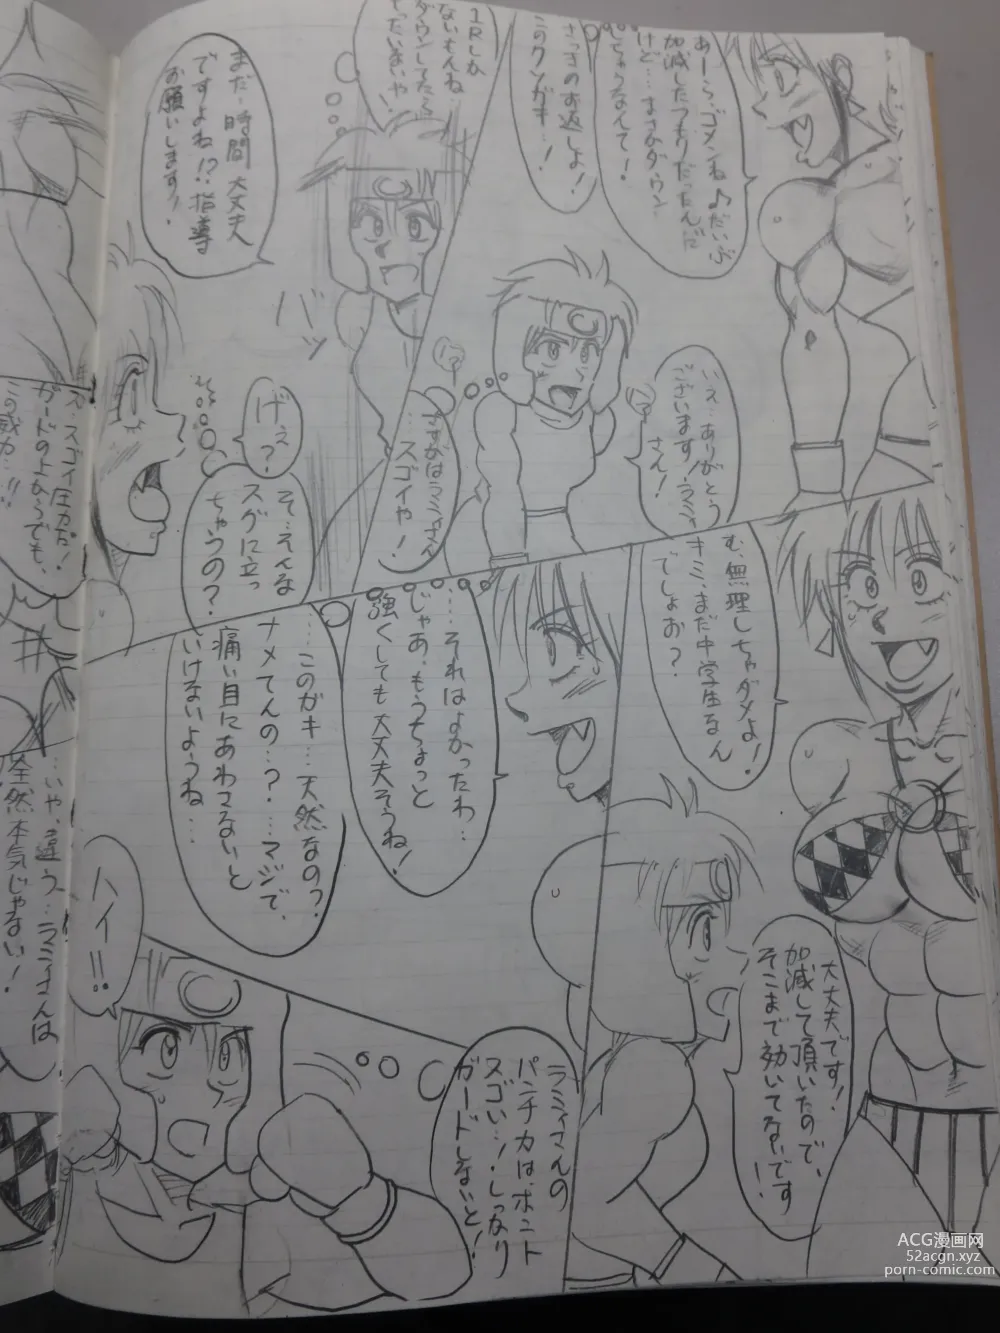 あーら、ゴメンね♪だいぶ
加減したつもりだったんだ
けど…まさかダウン
しちゃうなんて！
さっきのお返しよ！
このクソガキ…！
いえ…ありがとう
ございます！ラミィ
さん！
さすがはラミィさん
…スゴイや！
1Rしか
ないもんね…
ダウンしてたら
もったいないや
まだ…時間大丈夫
ですよね！？指導
お願いします！
バッ
げぇ？
そ…そんな
スグに立っ
ちゃうの？
む、無理しちゃダメよ！
キミ、まだ中学生なん
でしょお？
大丈夫です！
加減して頂いたので、
そこまで効いてないです！
…それはよかったわ…
じゃあ、もうちょっと
強くしても大丈夫そうね！
…このガキ…天然なの？
ナメてんの…？…マジで、
痛い目にあわさないと
いけないようね…
ラミィさんの
パンチ力は、ホント
スゴい…！しっかり
ガードしないと！
ハイ!!
ス、スゴイ圧力だ！
ガードの上からでも、
この威力…!!
…いや、違う…ラミィさんは
全然本気じゃない！
ACG漫画网
52acgn.xyz
porn-comic.com